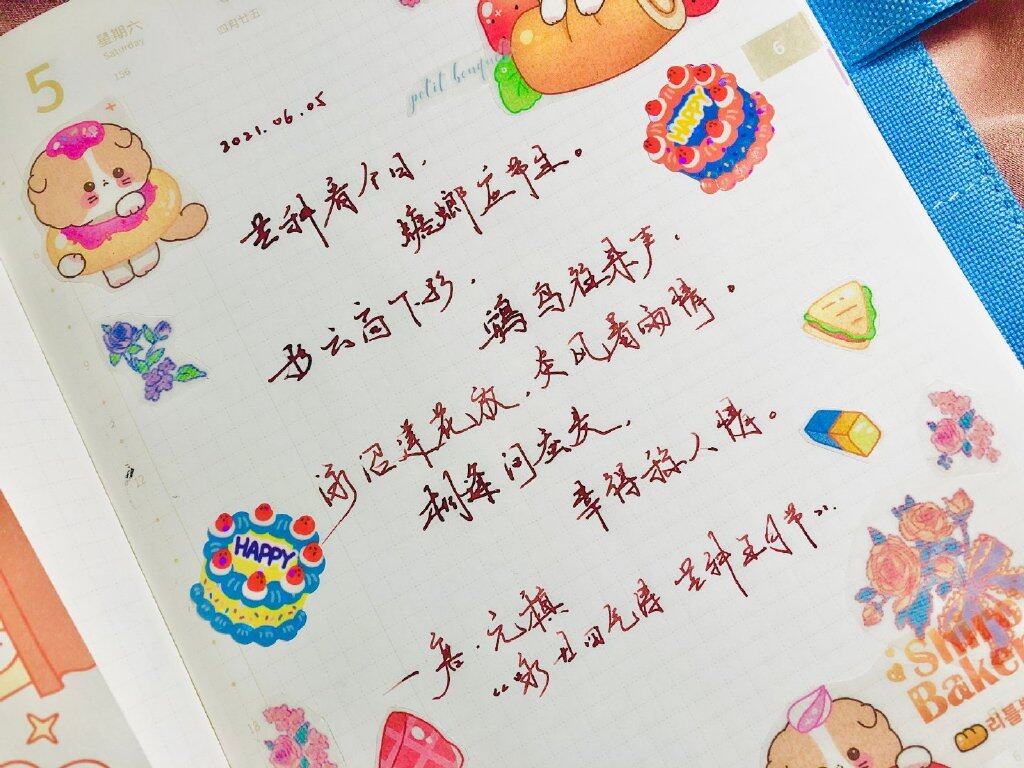 5
星期六
Saturday
156
四月廿五
6
petit bouquet
2021.06.05
HAPPY
芒种看今日,
螳螂应节生。
彤云高下影,
鴳鸟往来声,
渌沼莲花放,炎风暑雨情。
相逢问蚕麦,
幸得称人情。
HAPPY
—唐·元稹
“咏廿四气诗 芒种五月节”
Bake
18